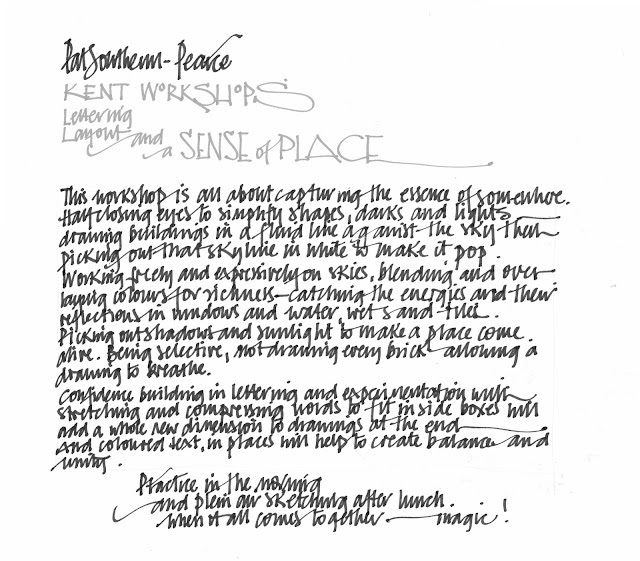 Pat Southern-Pearce
KENT WORKSHOPS
Lettering
Layout and
a SENSE of PLACE
This workshop is all about capturing the essence of somewhere.
Half closing eyes to simplify shapes, darks and lights
drawing buildings in a fluid line against the sky then
picking out that skyline in white to make it pop.
Working freely and expressively on skies, blending and over
laying colours for richness - catching the energies and their
reflections in windows and water, wet sand tiles.
Picking out shadows and sunlight to make a place come
alive. Being selective, not drawing every brick - allowing a
drawing to breathe.
Confidence building in lettering and experimentation with
stretching and compressing words to fit inside boxes will
add a whole new dimension to drawings at the end
And coloured text, in places will help to create balance and
unity.
Practice in the morning
and plein air sketching after lunch.
when it all comes together magic!